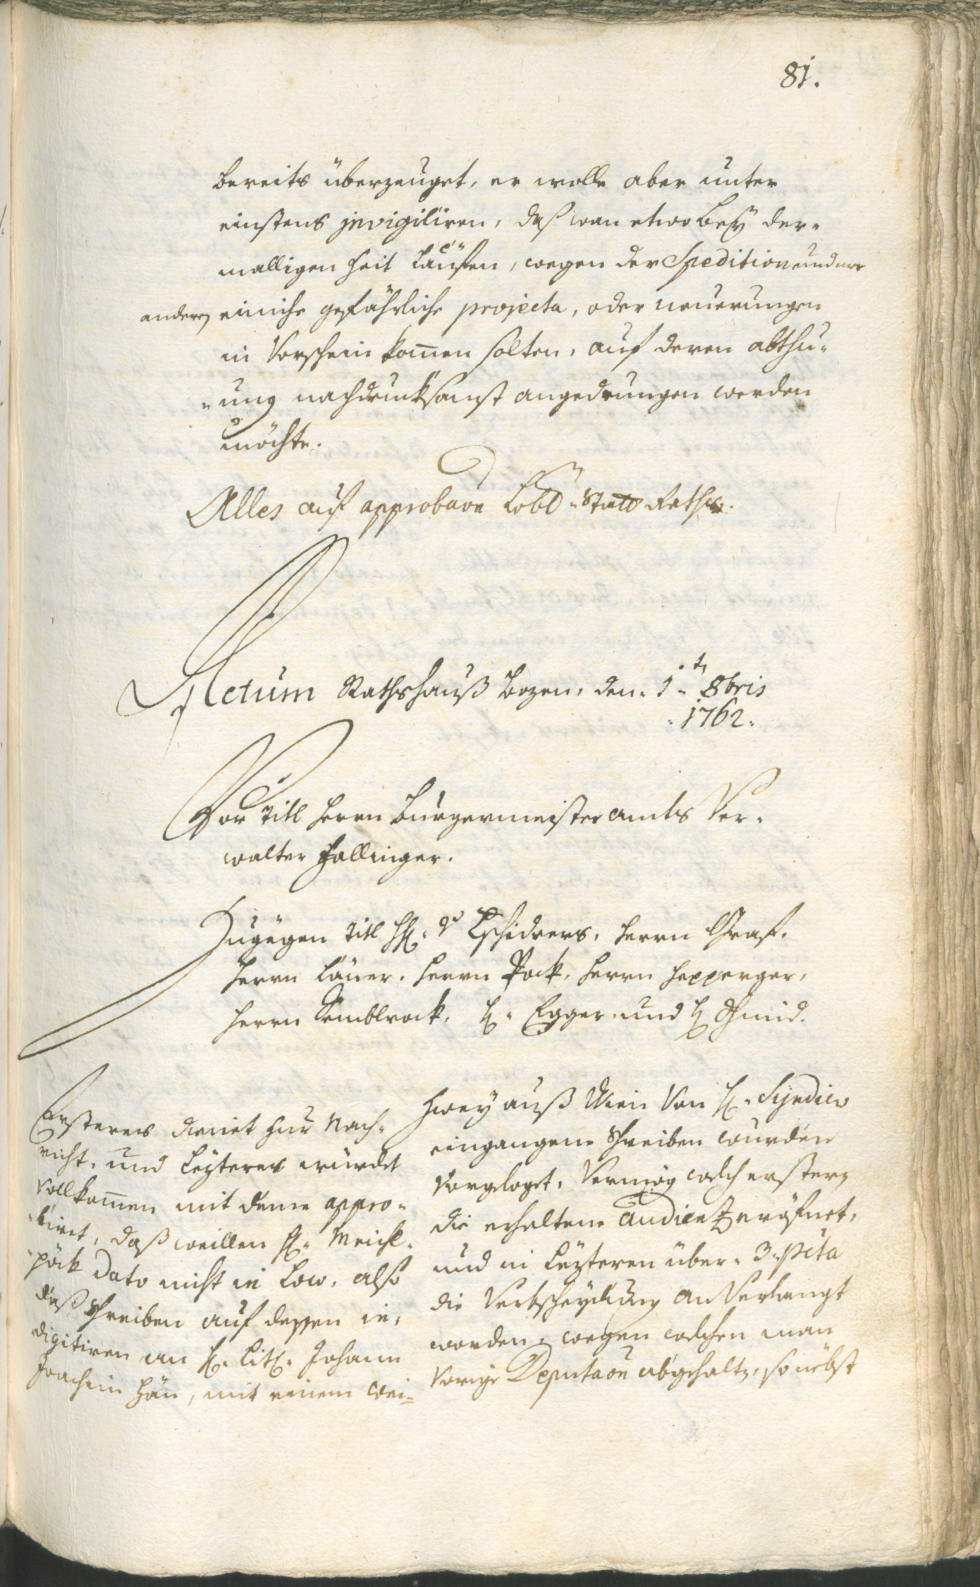 81.
bereits überzeuget, er wolle aber unter
einstens invigiliren, daß wan etwo beÿ der-
malligen Zeit läuffen, wegen der Spedition und
anderen einiche gefährliche projecta, oder neuerungen
in Vorschein kom̅en solten, auf deren abthu-
-ung nachdruksamst angedrungen werden
möchte.
Alles auf approbaōn Lobl. Statt Raths.
Actum Rathshauß Bozen, den 1.ten 8bris
1762.
Vor Titl Herrn Burgermeister amts Ver-
walter Hallinger.
Zugegen Titl H. v. Tschidrers, Herrn Graf,
Herrn Laner, Herrn Pock, Herrn Hepperger,
Herrn Semblrock, H. Egger und H. Schmid.
Ersteres dienet zur Nach-
richt, und Lezteres würdet
vollkom̅en mit deme appro-
birt, daß weillen H. Meichl-
pöck dato nicht in Loco, also
daß schreiben auf dessen in-
digitiren an H. Lit. Johann
Joachim Hän, mit einem Wei-
Zweÿ auß Wien von H. Sÿndico
eingangene Schreiben wurden
vorgeleget, Vermög welch ersteren
die erhaltene Audientz eröfnet,
und in Lezteren über 3 p̅cta
die Verbscheÿdung anverlangt
worden, wegen welchen man
vorige Deputaōn abgehalten, so nebst